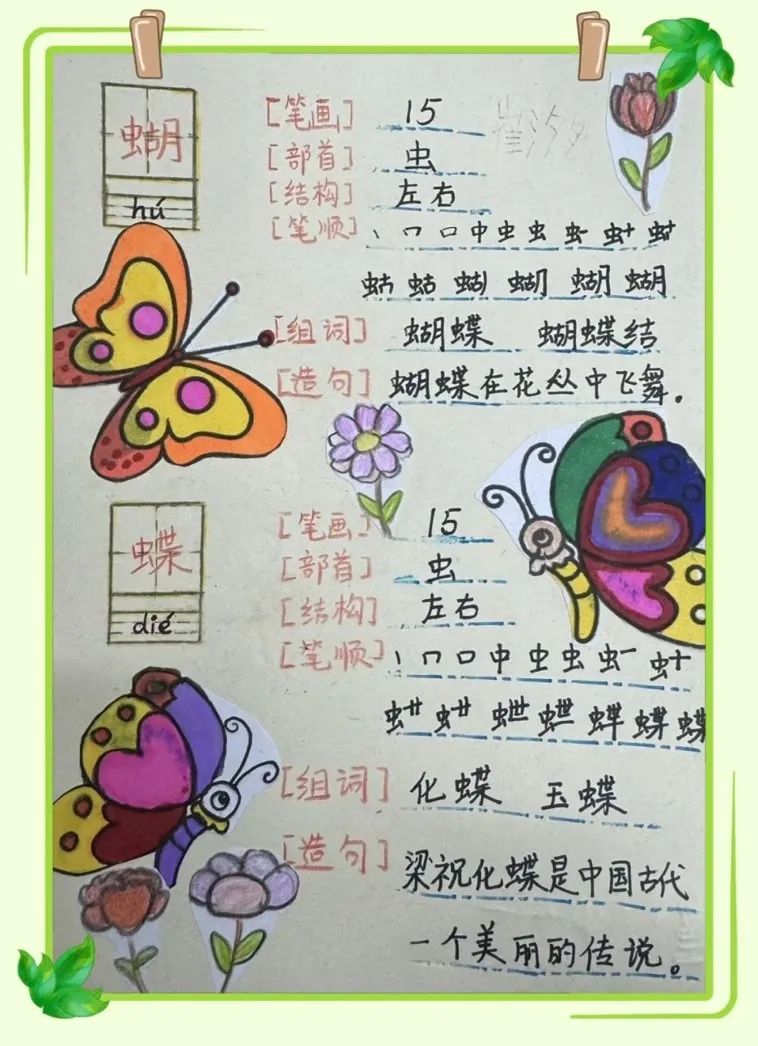 蝴
hú
[笔画] 15
[部首] 虫
[结构] 左右
[笔顺] 丶 冂 口 中 虫 虫 虫一 虫十 虫
蛄 蛄 蝴 蝴 蝴 蝴
[组词] 蝴蝶 蝴蝶结
[造句] 蝴蝶在花丛中飞舞。
蝶
dié
[笔画] 15
[部首] 虫
[结构] 左右
[笔顺] 丶 冂 口 中 虫 虫 虫一 虫十
虫廿 虫廿 虫世 虫世 蝶 蝶 蝶
[组词] 化蝶 玉蝶
[造句] 梁祝化蝶是中国古代
一个美丽的传说。